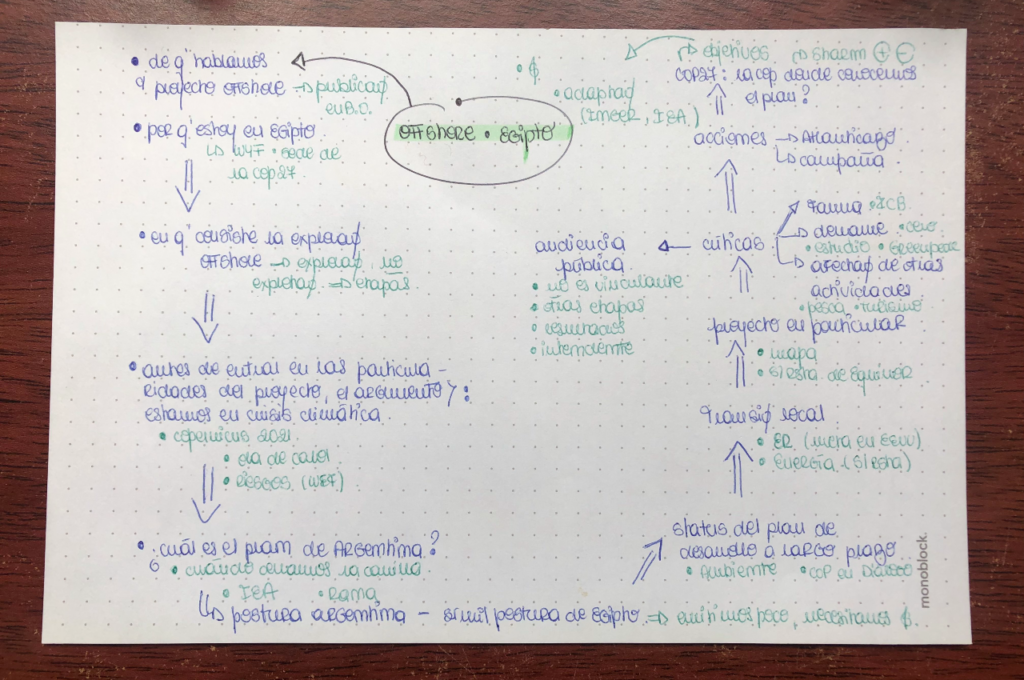 OFFSHORE • EGIPTO
• de q' hablamos
proyecto OFFSHORE → publicaç
en B.C.
• por q' estoy en EGIPTO
↳ WTF • sede de
la COP27
• en q' consiste la exploraç
OFFSHORE → exploraç, no
explotaç ⇒ etapas
• antes de entrar en las particula-
ridades del proyecto, el argumento y:
estamos en crisis climática
• copernicus 2021
• ola de calor
• RIESGOS (WEF)
• cuál es el plan de ARGENTINA?
• cuándo cerramos la canilla
• IEA • Rama
↳ postura argentina – simil postura de EGIPTO ⇒ emitimos poco, necesitamos $
status del plan de
desarrollo a largo plazo
• Ambiente • COP en Diálogo
Transiç local
• ER (meta en EEUU)
• ENERGÍA (SIESTA)
proyecto en particular
• mapa
• SIESTA de EQUINOR
críticas
→ fauna • ICB
→ derrame • cero
• estudio • Greenpeace
→ afectaç de otras
actividades
• pesca • turismo
audiencia
pública
• no es vinculante
• otras etapas
• resultados
• intendente
acciones → Atlanticazo
↳ campaña
COP27: la COP donde conocemos
el plan?
→ objetivos → Sharm ⊕ ⊖
• $
• adaptaç
monoblock.